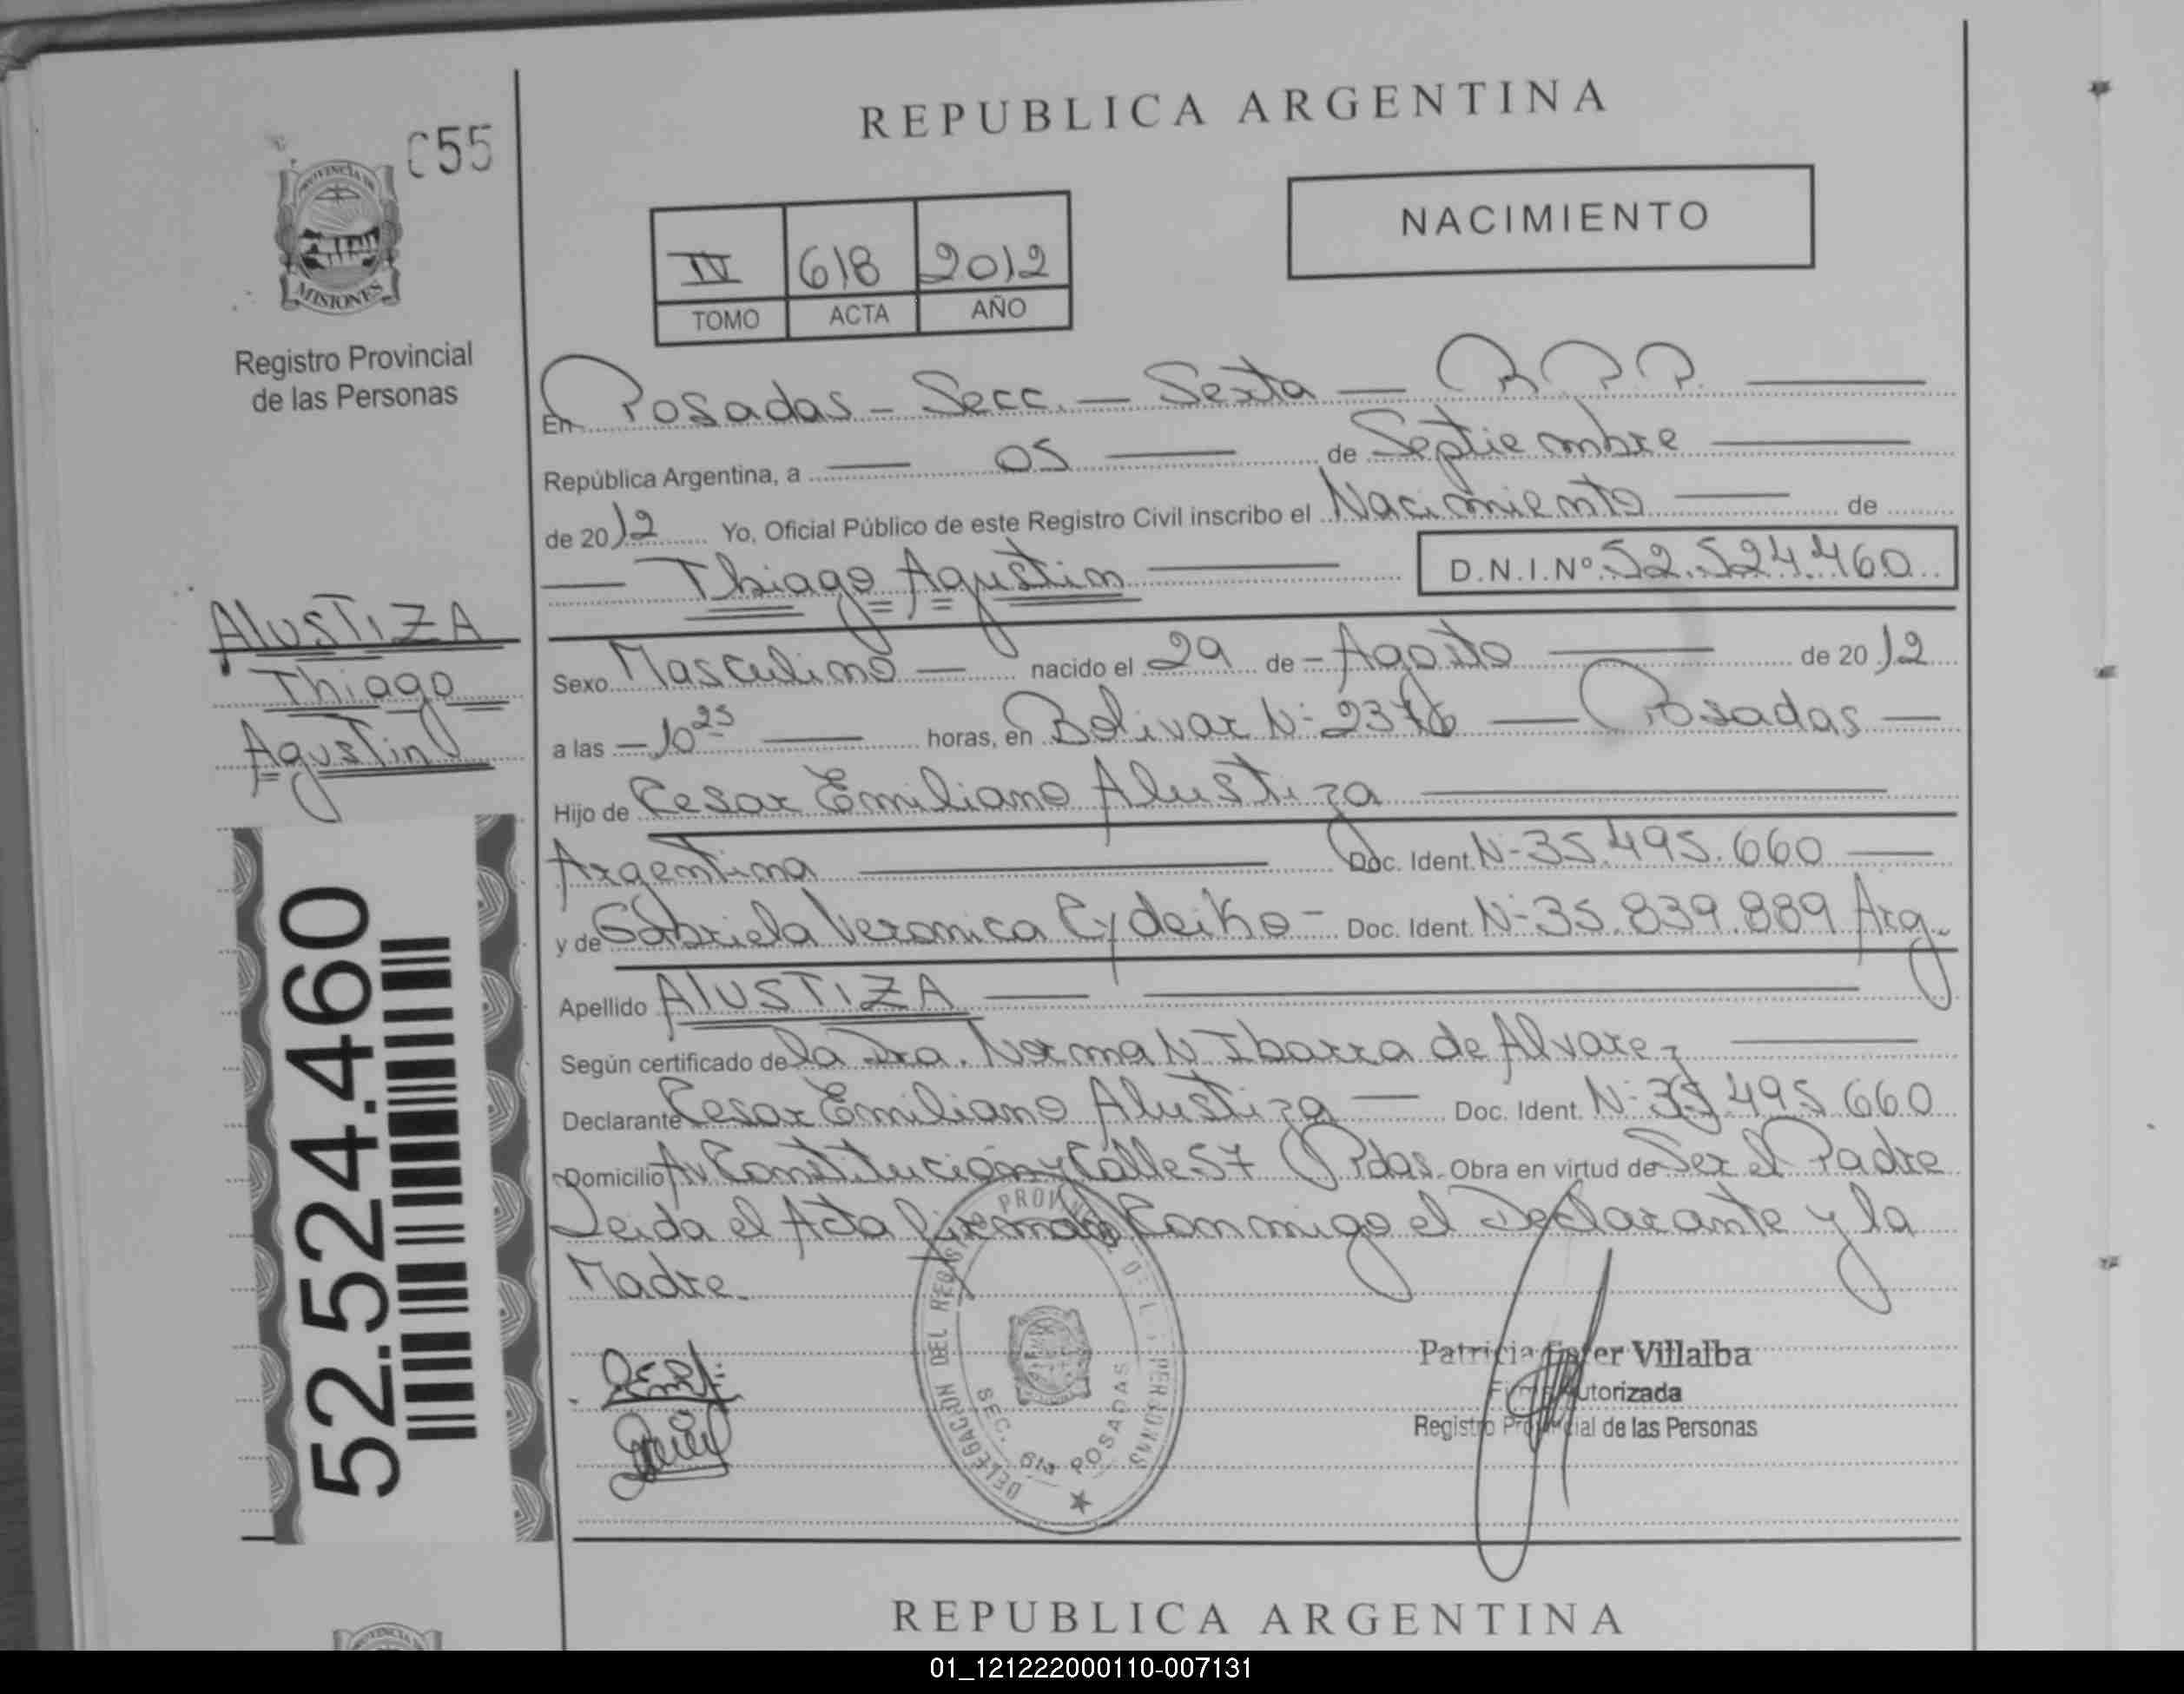 REPUBLICA ARGENTINA
C55
PROVINCIA DE
MISIONES
Registro Provincial
de las Personas
NACIMIENTO
IV 618 2012
TOMO ACTA AÑO
En Posadas - Secc. - Sexta - R.P.P.
República Argentina, a 05 de Septiembre
de 2012 Yo, Oficial Público de este Registro Civil inscribo el Nacimiento de
Thiago Agustin D.N.I.Nº 52.524.460
ALUSTIZA
Thiago
Agustin
Sexo Masculino nacido el 29 de Agosto de 2012
a las 10 25 horas, en Bolivar N: 2376 Posadas
Hijo de Cesar Emiliano Alustiza
Argentina Doc. Ident. N-35.495.660
y de Gabriela Veronica Cydeiko - Doc. Ident. N-35.839.889 Arg.
Apellido ALUSTIZA
Según certificado de la Dra. Norma N Ibarra de Alvarez
Declarante Cesar Emiliano Alustiza Doc. Ident. N: 35 495 660
Domicilio Av Constitución y Calle 57 Pdas. Obra en virtud de Ser el Padre
Leida el Acta firman Conmigo el Declarante y la
Madre.
52.524.460
DELEGACION DEL REGISTRO PROVINCIAL DE L PERSONAS
SEC. 6ta POSADAS
Patricia Ester Villalba
Firma Autorizada
Registro Provincial de las Personas
REPUBLICA ARGENTINA
01_121222000110-007131